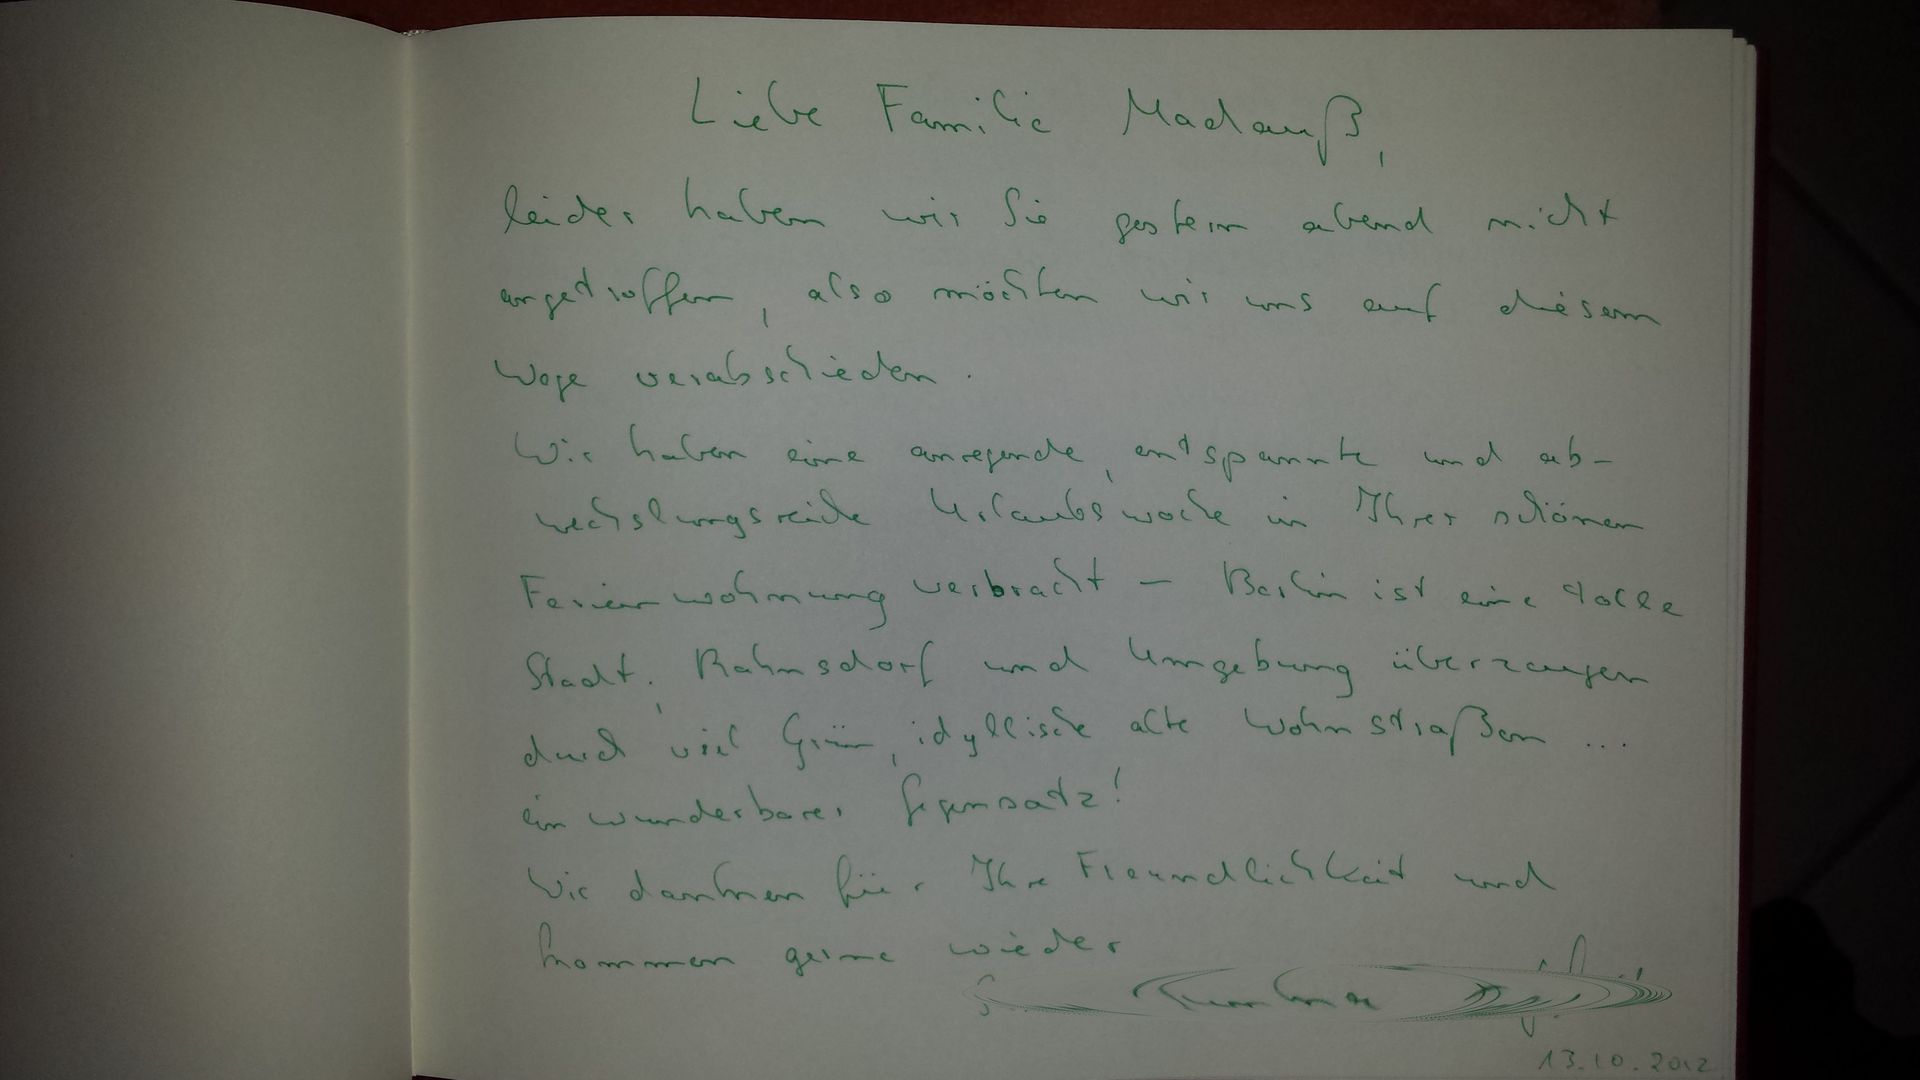 Liebe Familie Madauß,
leider haben wir Sie gestern abend nicht
angetroffen, also möchten wir uns auf diesem
Wege verabschieden.
Wir haben eine anregende, entspannte und ab-
wechslungsreiche Urlaubswoche in Ihrer schönen
Ferienwohnung verbracht – Berlin ist eine tolle
Stadt, Rahnsdorf und Umgebung überzeugen
durch viel Grün, idyllische alte Wohnstraßen ...
ein wunderbarer Gegensatz!
Wir danken für Ihre Freundlichkeit und
kommen gerne wieder
13.10.2012